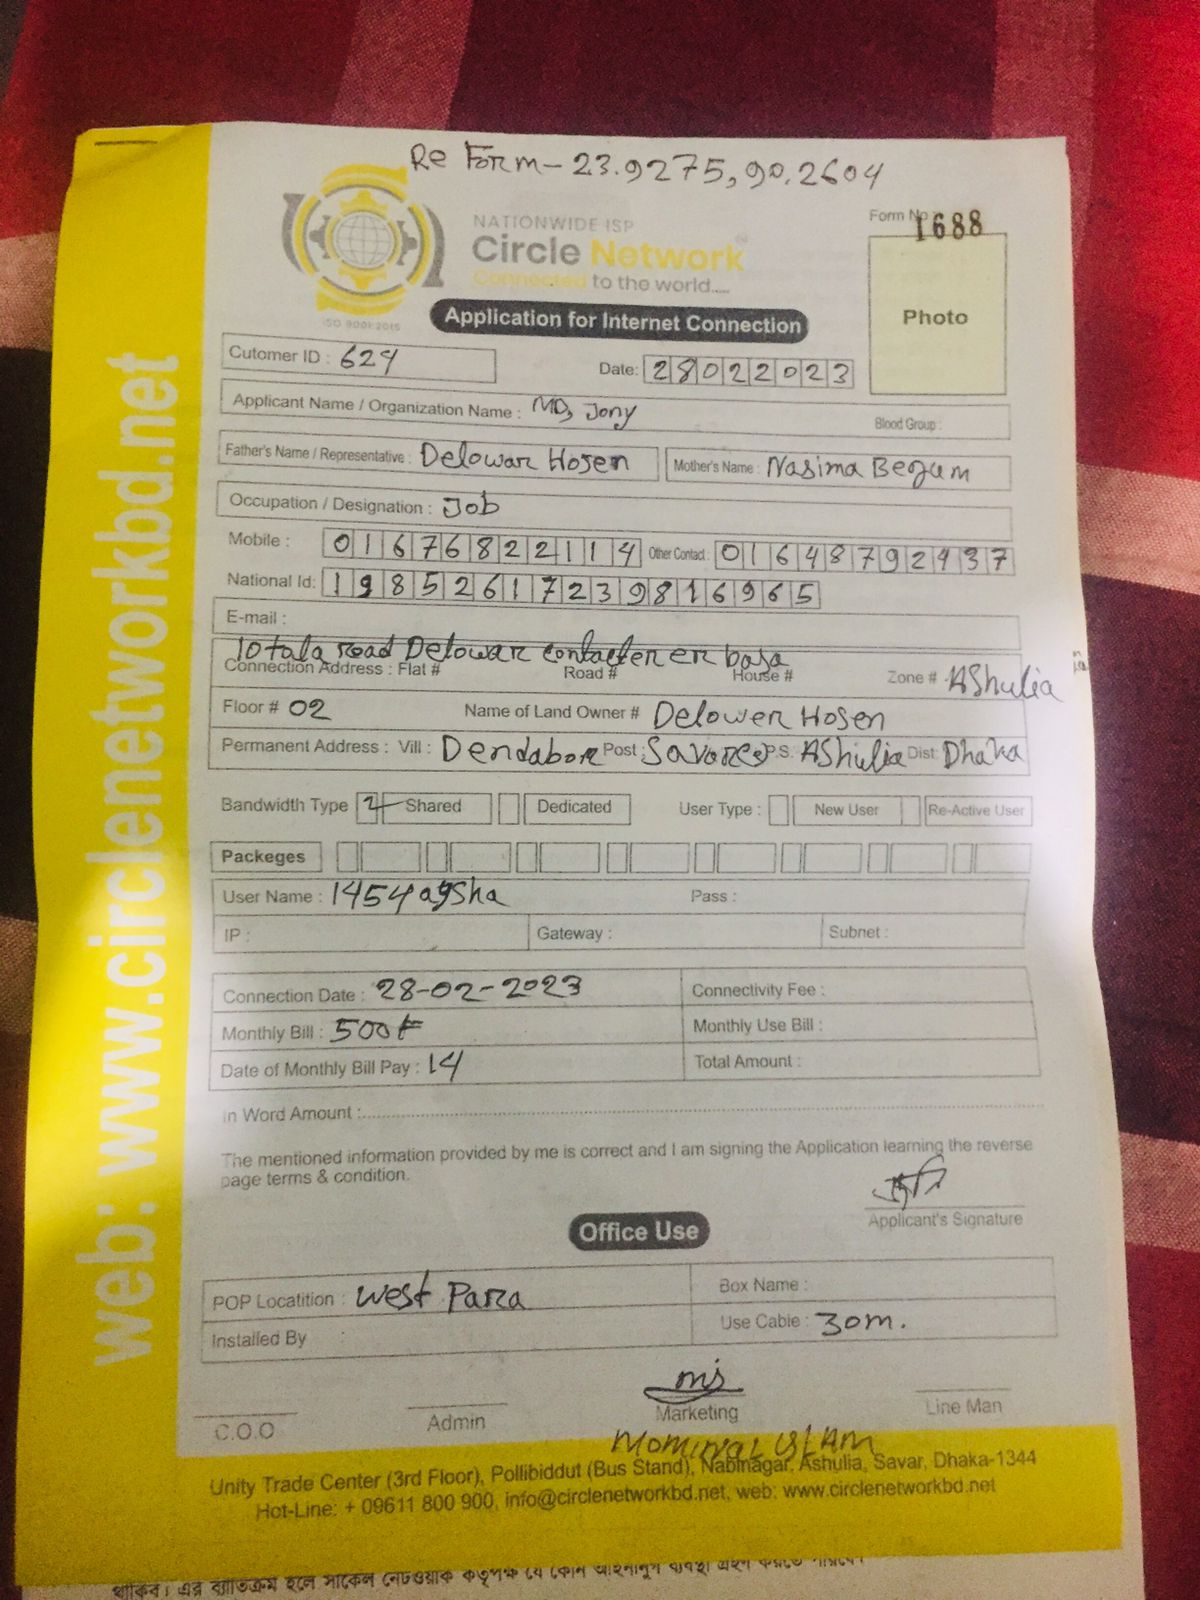 Re Form - 23.9275, 90.2604
NATIONWIDE ISP
Circle Network
Connected to the world....
ISO 9001:2015
Form No 1688
Photo
Application for Internet Connection
Cutomer ID : 624
Date: 28022023
Applicant Name / Organization Name : MD, Jony Blood Group :
Father's Name / Representative : Delowar Hosen Mother's Name : Nasima Begum
Occupation / Designation : Job
Mobile : 01676822114 Other Contact : 01648792437
National Id: 19852617239816965
E-mail :
10 tala road Delowar contacter er basa
Connection Address : Flat # Road # House # Zone # AShulia
Floor # 02 Name of Land Owner # Delower Hosen
Permanent Address : Vill : Dendabor Post : Savar P.S. AShulia Dist: Dhaka
Bandwidth Type Shared Dedicated User Type : New User Re-Active User
Packeges
User Name : 1454aysha Pass :
IP : Gateway : Subnet :
Connection Date : 28-02-2023 Connectivity Fee :
Monthly Bill : 500 Monthly Use Bill :
Date of Monthly Bill Pay : 14 Total Amount :
In Word Amount :
The mentioned information provided by me is correct and I am signing the Application learning the reverse
page terms & condition.
Applicant's Signature
Office Use
POP Locatition : West Para Box Name :
Installed By : Use Cable : 30m.
C.O.O Admin Marketing Line Man
Mominul ISLAM
Unity Trade Center (3rd Floor), Pollibiddut (Bus Stand), Nabinagar, Ashulia, Savar, Dhaka-1344
Hot-Line: + 09611 800 900, info@circlenetworkbd.net, web: www.circlenetworkbd.net
web: www.circlenetworkbd.net
থাকিব। এর ব্যতিক্রম হলে সার্কেল নেটওয়ার্ক কতৃপক্ষ যে কোন আইনানুগ ব্যবস্থা গ্রহণ করতে পারবে।